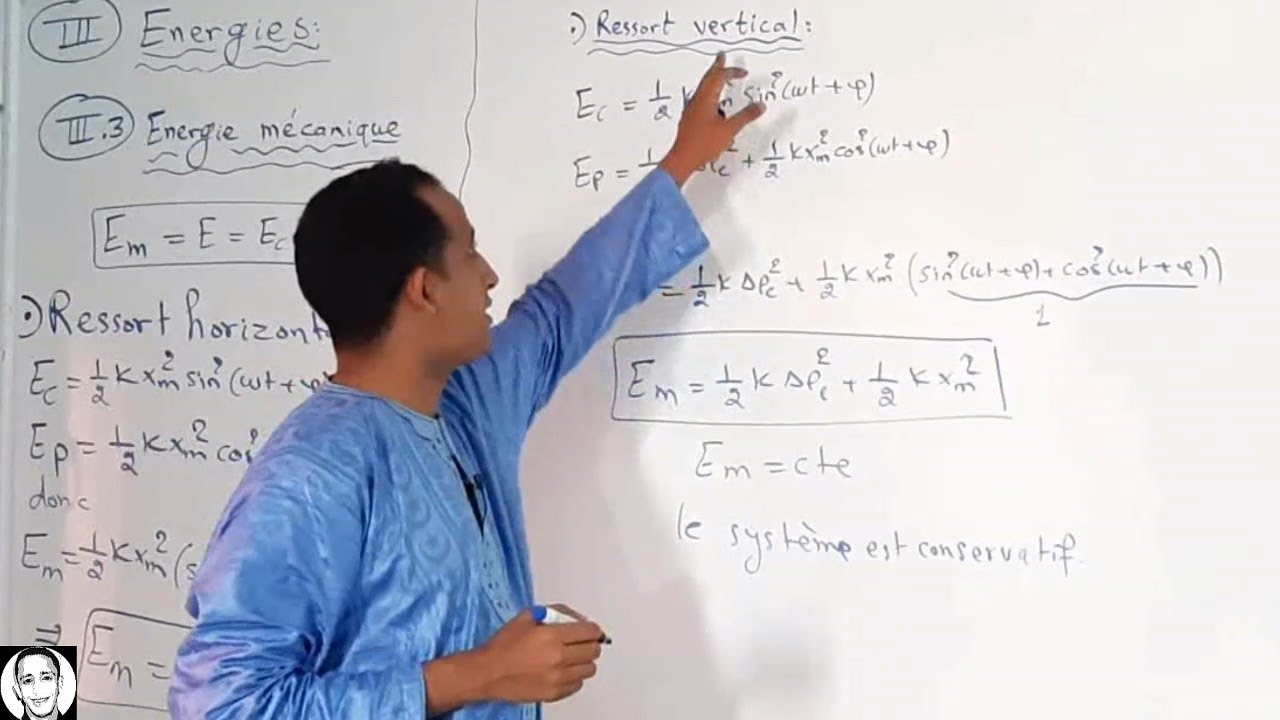 III Energies:
III.3 Energie mécanique
Em = E = Ec
•) Ressort horizont
Ec = 1/2 K xm² sin² (wt + φ)
Ep = 1/2 K xm² cos²
donc
Em = 1/2 K xm² (s
Em =
•) Ressort vertical:
Ec = 1/2 K m² sin² (wt + φ)
Ep = 1 ℓc² + 1/2 K xm² cos² (wt + φ)
= 1/2 K Δℓc² + 1/2 K xm² (sin² (wt + φ) + cos² (wt + φ))
1
Em = 1/2 K Δℓc² + 1/2 K xm²
Em = cte
le système est conservatif.